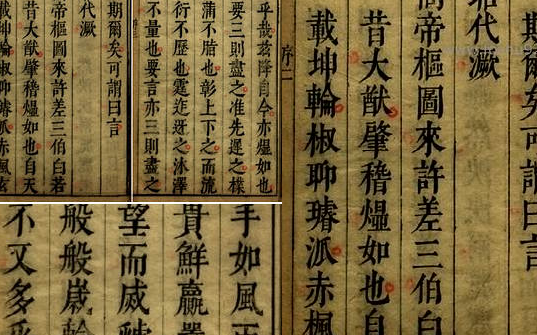 乎哉茲降自今亦煴如也
要三則盡之准先遲之樸
蒲不㫺也彰上下之而流
衍不歷也霆迄迓之沐澤
不量也要言亦三則盡之
期爾矣可謂曰言
代漱
帝樞圖來許差三伯白若
昔大猷肇稽煴如也自天
載坤輪椒聊璿泒赤楓玄
期爾矣可謂曰言
代漱
帝樞圖來許差三伯白
昔大猷肇稽煴如也自
載坤輪椒聊璿泒赤楓
序二
手如風
貫鮮贏
望而威
般般崴
不又多